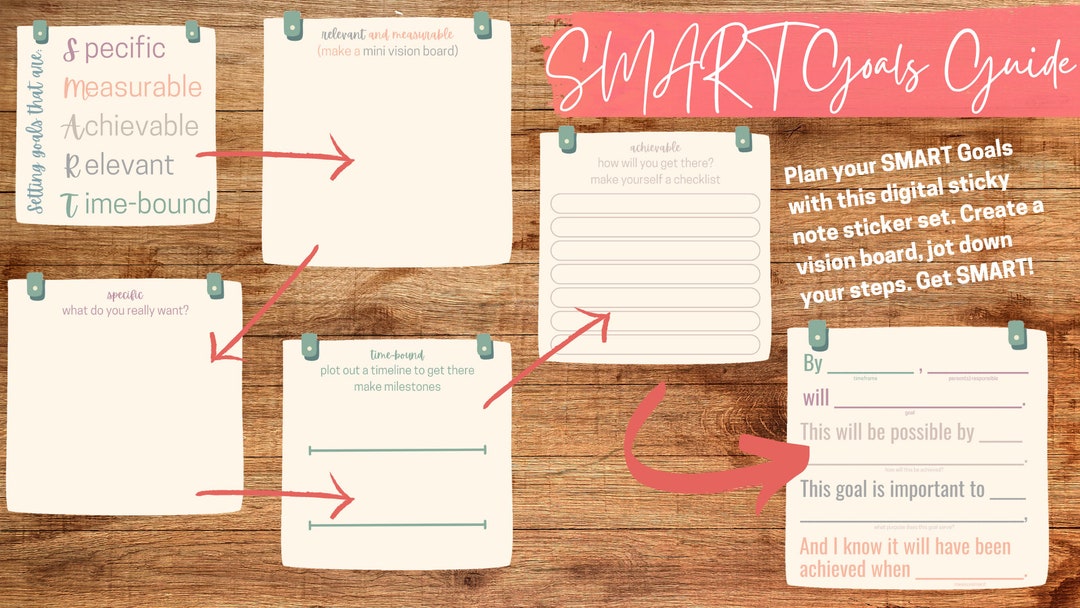 Setting goals that are:
Specific
Measurable
Achievable
Relevant
Time-bound
relevant and measurable
(make a mini vision board)
SMART Goals Guide
specific
what do you really want?
time-bound
plot out a timeline to get there
make milestones
achievable
how will you get there?
make yourself a checklist
Plan your SMART Goals
with this digital sticky
note sticker set. Create a
vision board, jot down
your steps. Get SMART!
By ____________ , ______________
timeframe person(s) responsible
will __________________________.
goal
This will be possible by _____
____________________________.
how will this be achieved?
This goal is important to ____
____________________________,
what purpose does this goal serve?
And I know it will have been
achieved when ______________.
measurement